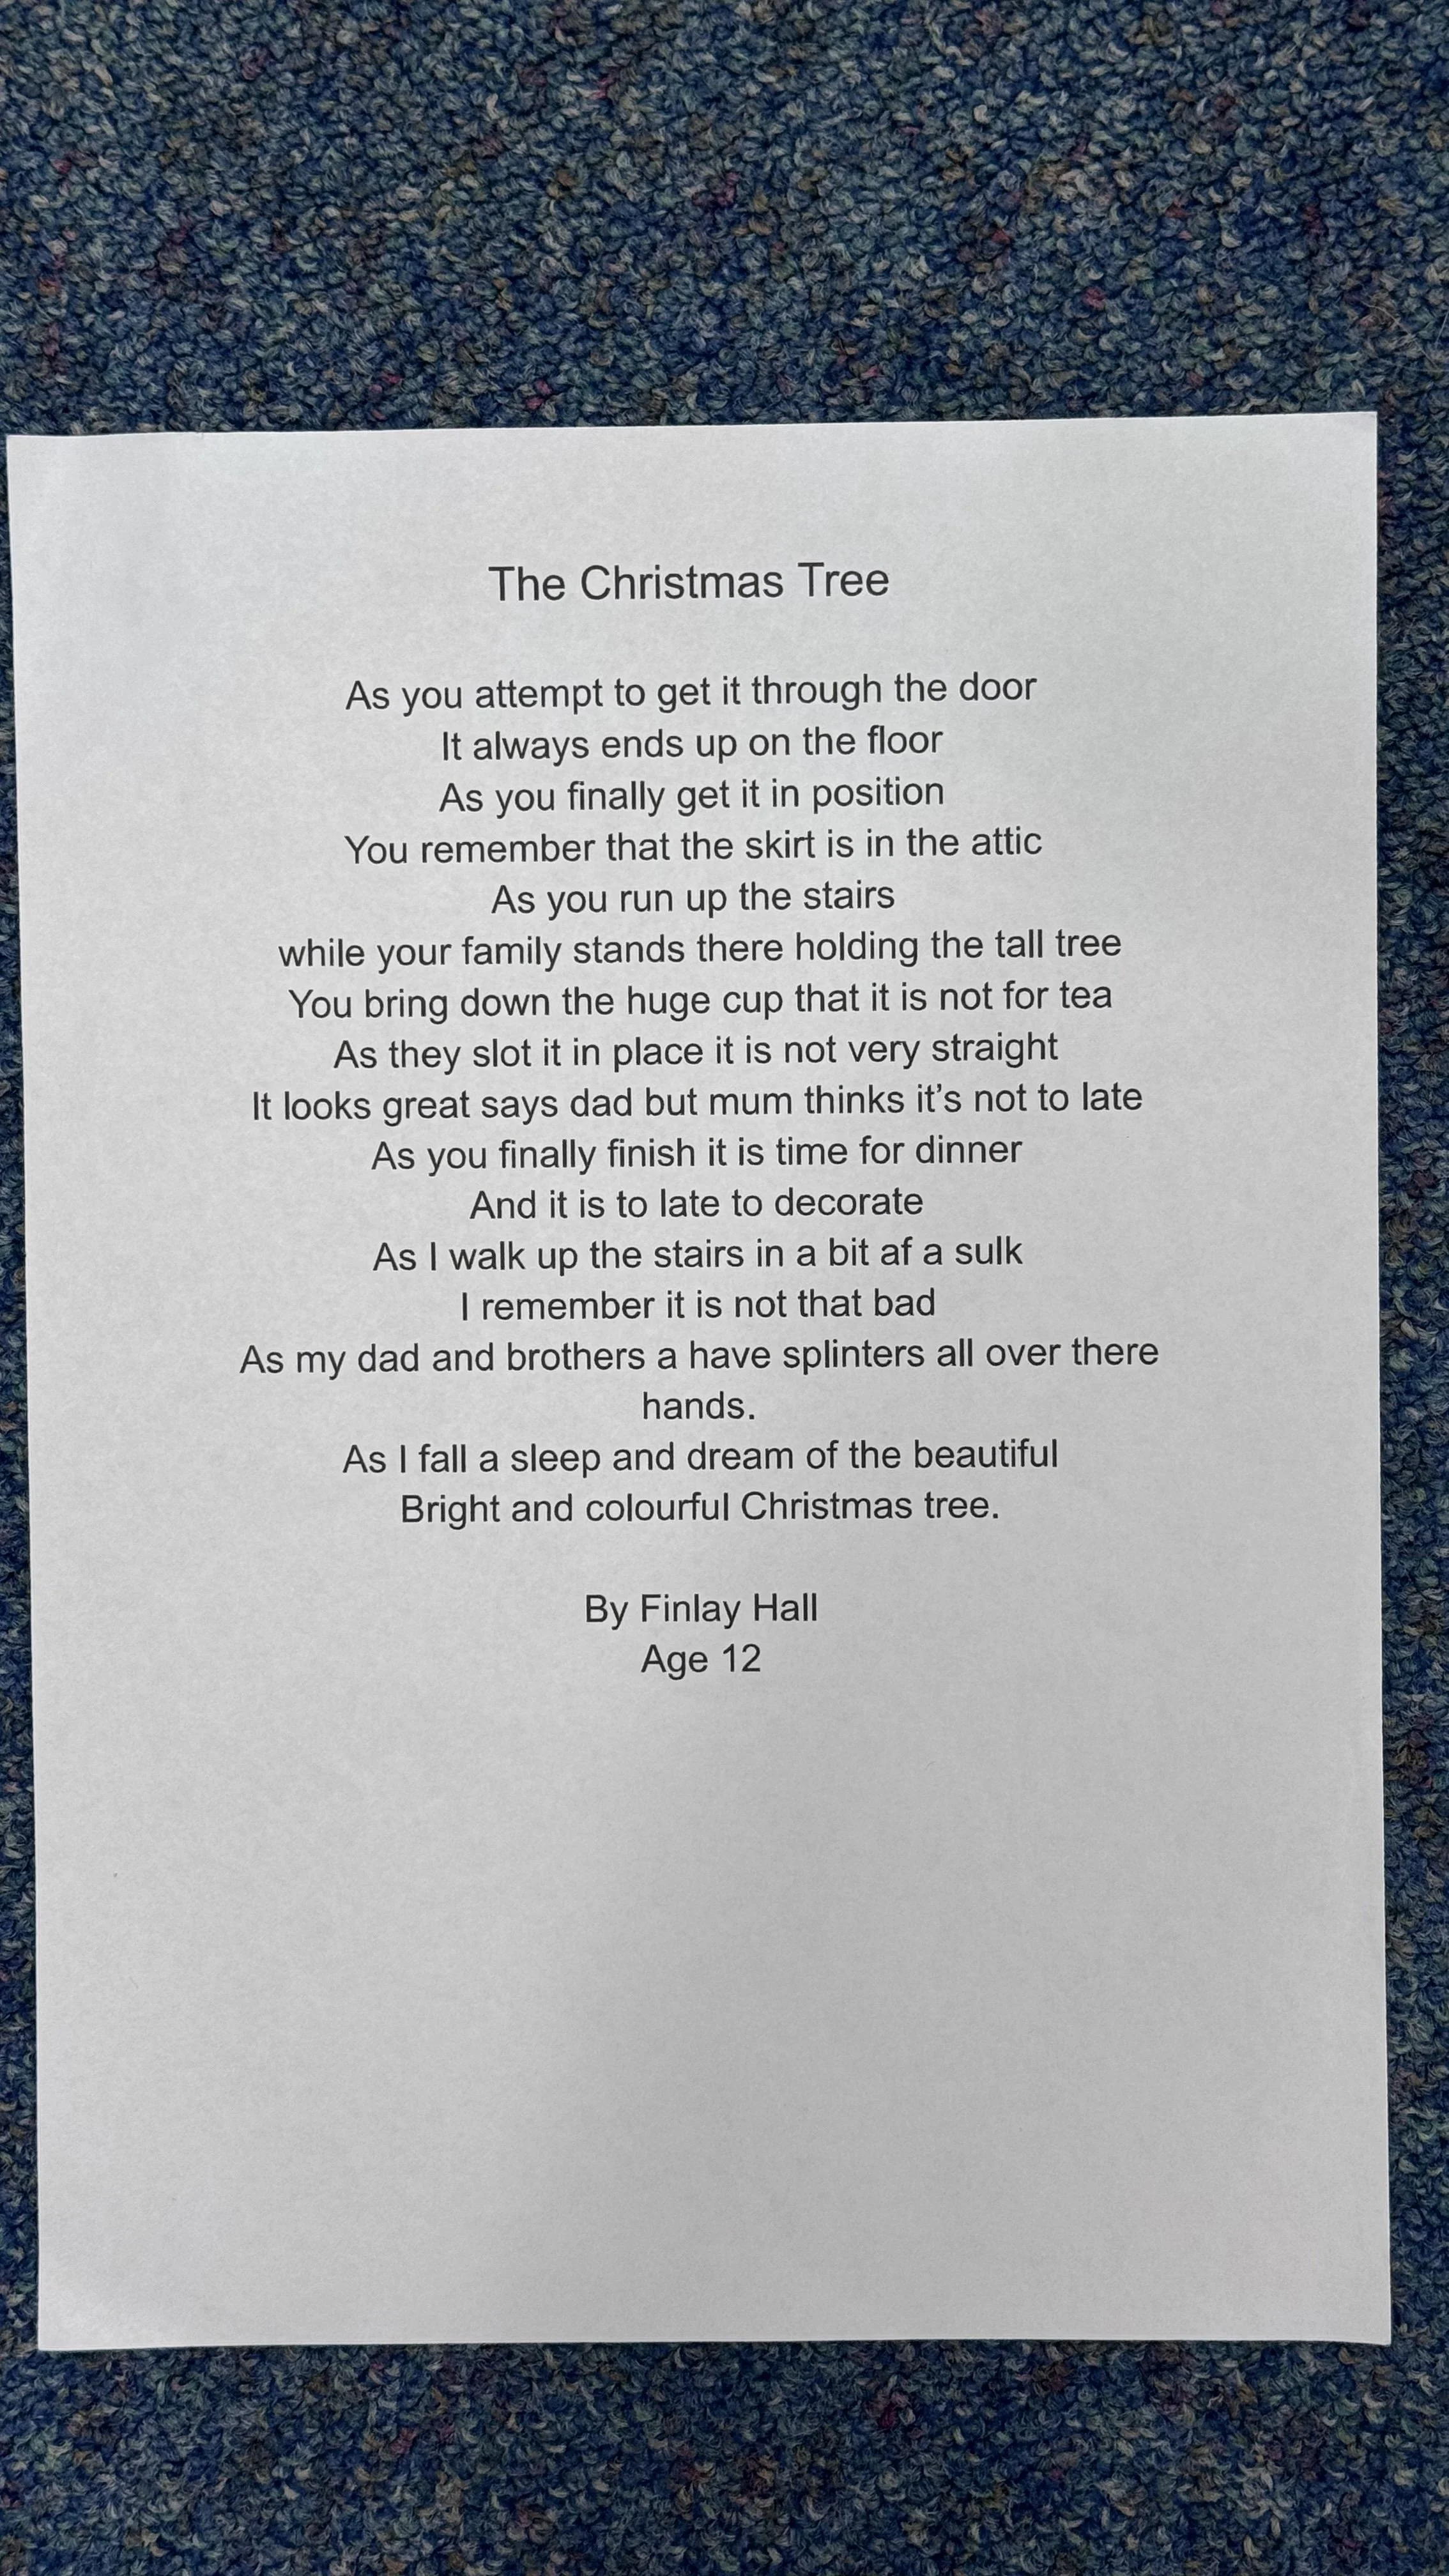 The Christmas Tree
As you attempt to get it through the door
It always ends up on the floor
As you finally get it in position
You remember that the skirt is in the attic
As you run up the stairs
while your family stands there holding the tall tree
You bring down the huge cup that it is not for tea
As they slot it in place it is not very straight
It looks great says dad but mum thinks it’s not to late
As you finally finish it is time for dinner
And it is to late to decorate
As I walk up the stairs in a bit af a sulk
I remember it is not that bad
As my dad and brothers a have splinters all over there
hands.
As I fall a sleep and dream of the beautiful
Bright and colourful Christmas tree.
By Finlay Hall
Age 12